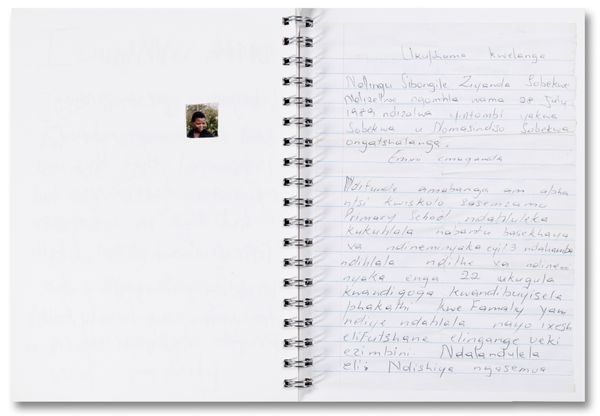 Ukuphuma kwelanga
Ndingu Sibongile Ziyanda Sobekwe
Ndizelwe ngomhla wama 28 July
1989 ndizalwa yintombi yakwa
Sobekwa u Nomasindiso Sobekwa
ongatshatanga.
Emva emuganda
Ndifunde amabanga am apha
ntsi kwiskolo sasemzamo
Primary School ndahluleka
kukuhlala nabantu basekhaya
xa ndineminyaka eyi13 ndahamba
ndihlala ndilhe xa ndinem
nyaka enga 22 ukugula
kwandigoga kwandibuyisela
phakathi kwe Famaly yam
ndiye ndahlala nayo ixesh
elifutshane elingange veki
ezimbini Ndalandulela
eli Ndishiye ngasemva